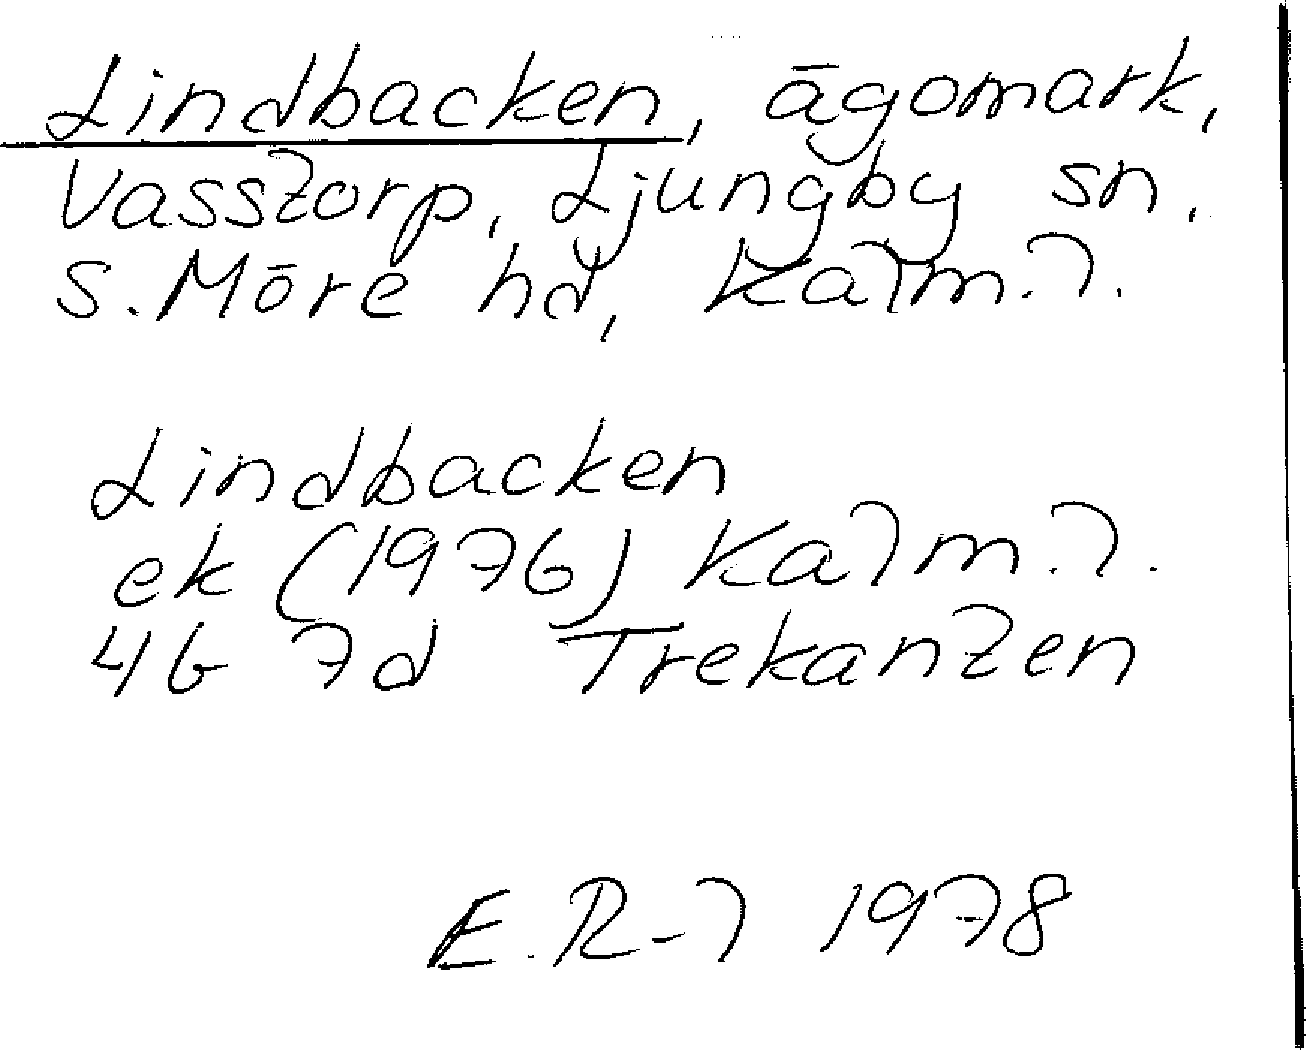 Lindbacken, ägomark,
Vasstorp, Ljungby sn.
S. Möre hd, Kalm. l.
Lindbacken
ek (1976) Kalm. l.
4G 7d Trekanten
E. R-l 1978